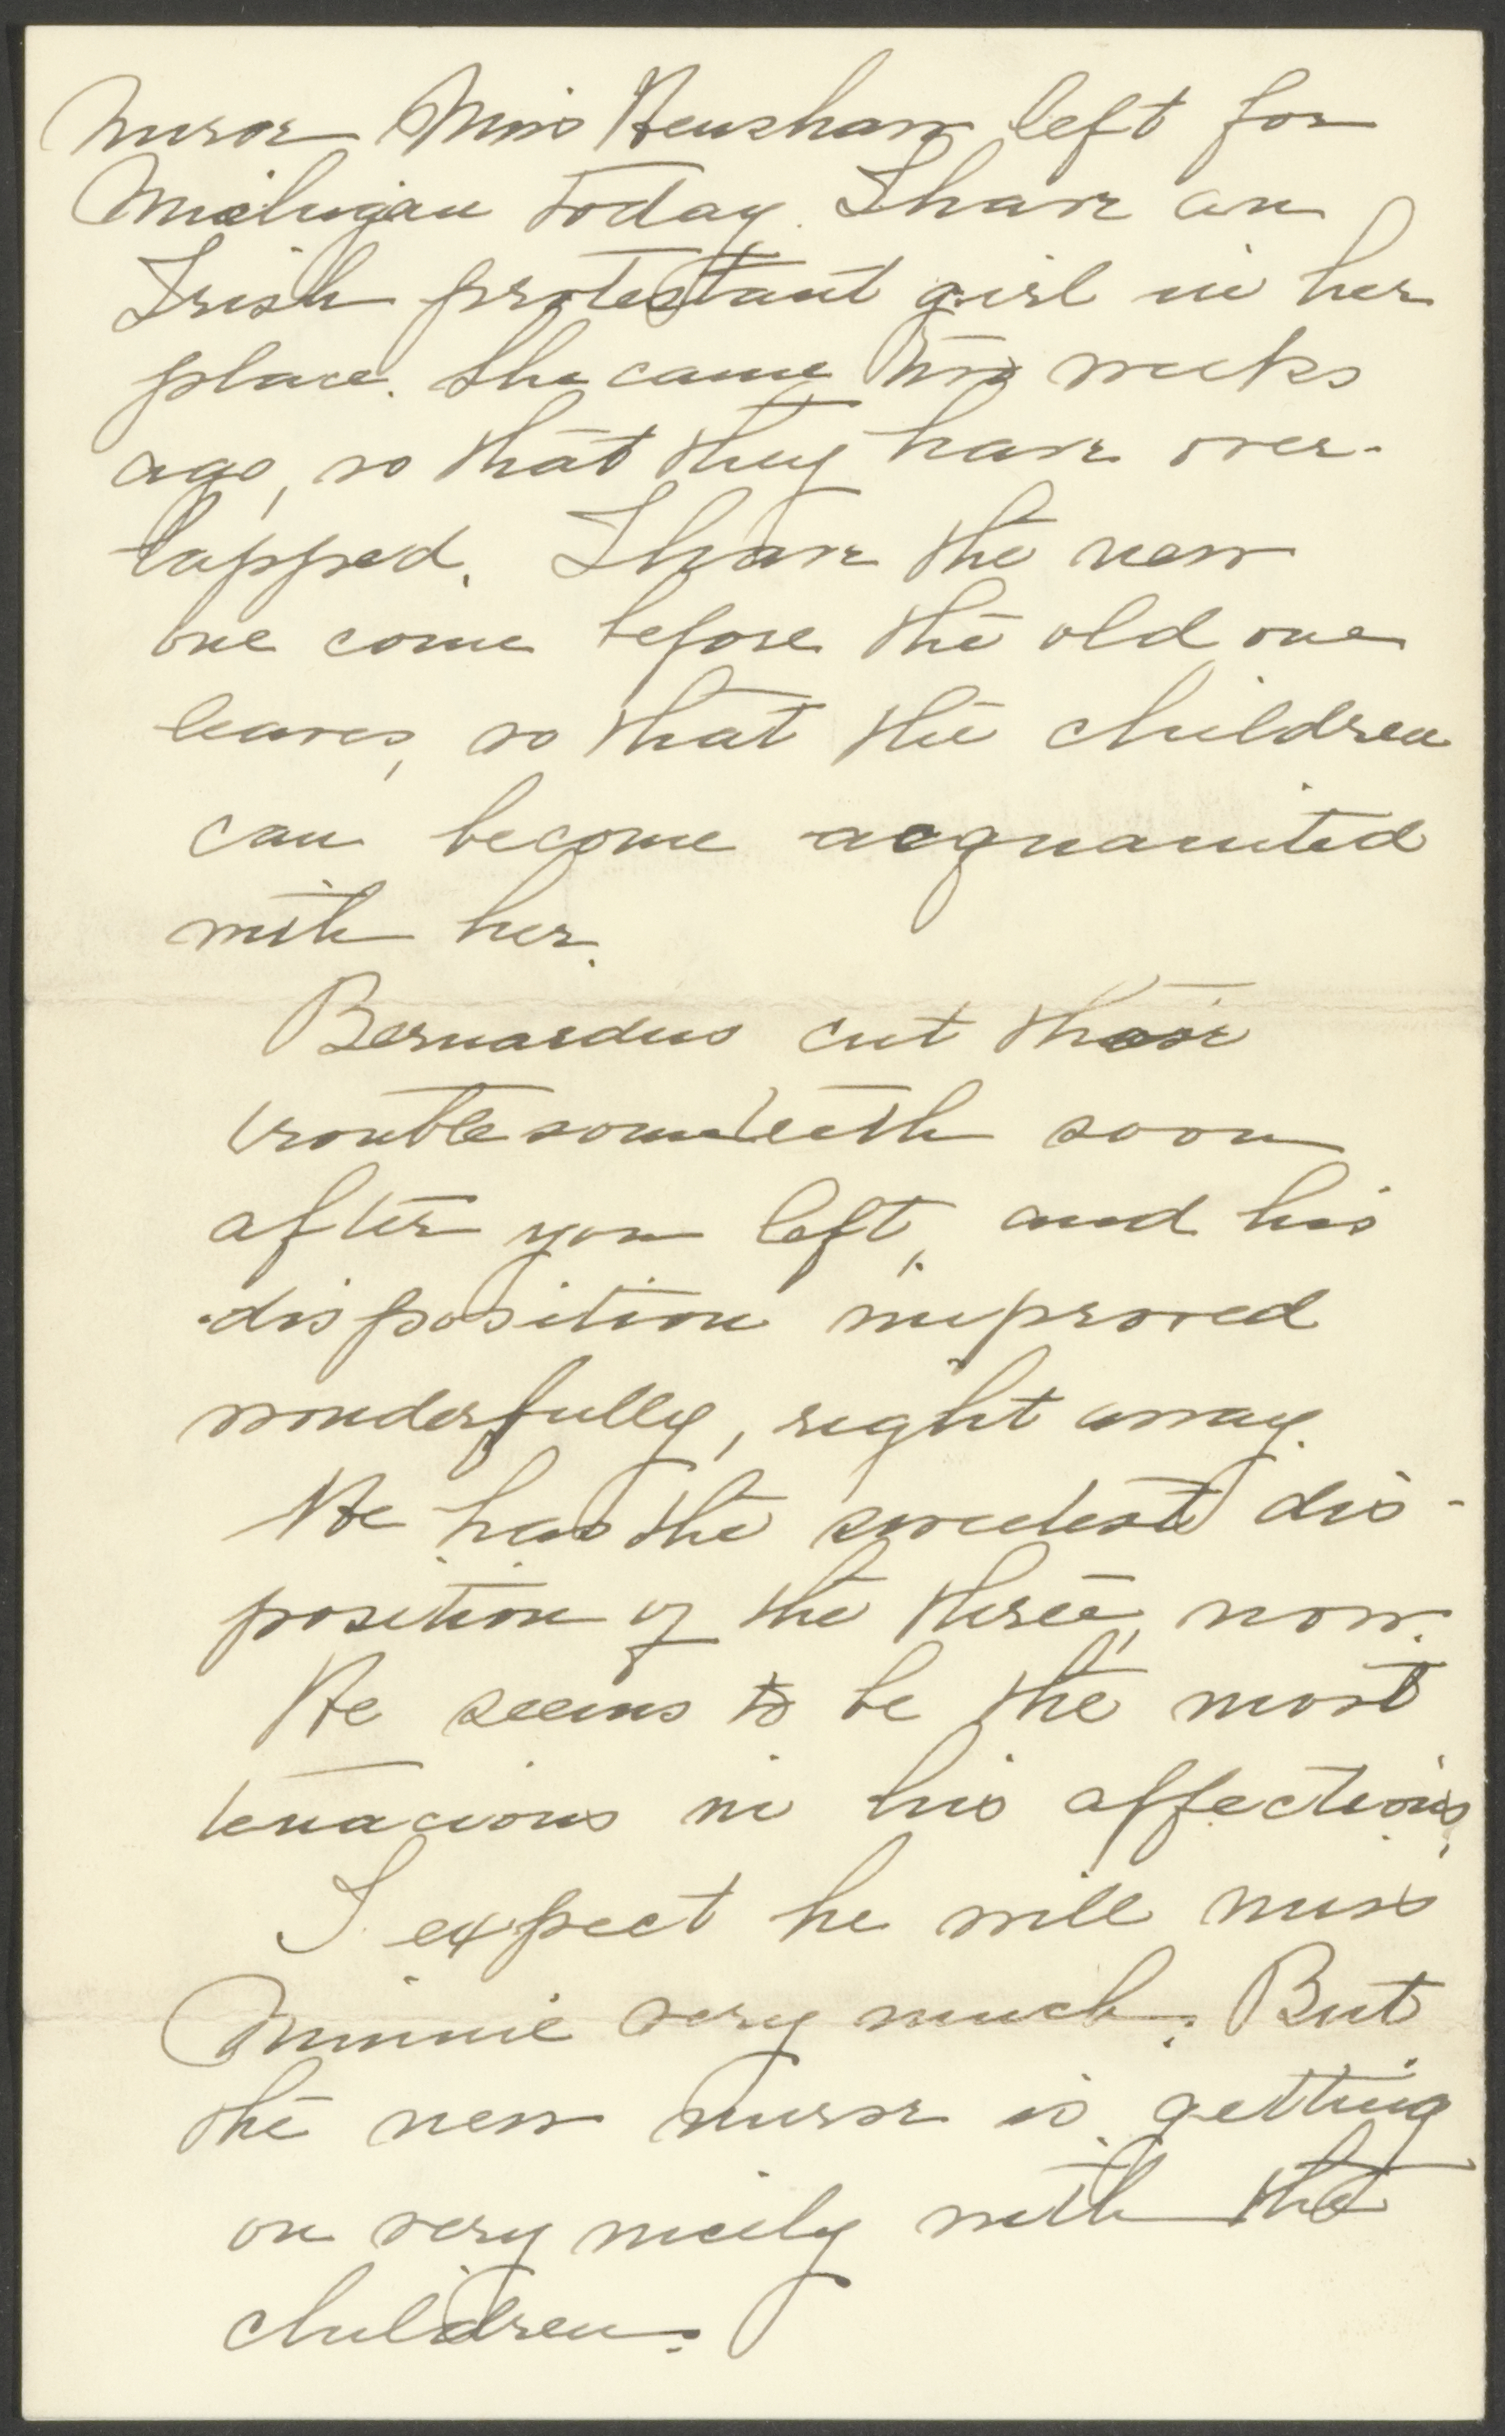 Nurse Miss Henshaw left for
Michigan today. I have an
Irish protestant girl in her
place. She came two weeks
ago, so that they have over-
lapped. I have the new
one come before the old one
leaves, so that the children
can become acquainted
with her.
Bernardus cut those
troublesome teeth soon
after you left, and his
disposition improved
wonderfully, right away.
He has the sweetest dis-
position of the three, now.
He seems to be the most
tenacious in his affections,
I expect he will miss
Minnie very much. But
the new nurse is getting
on very nicely with the
children.